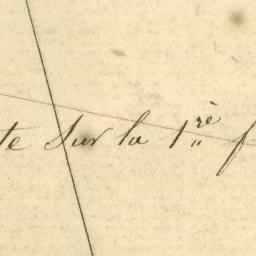 te sur la 1re f